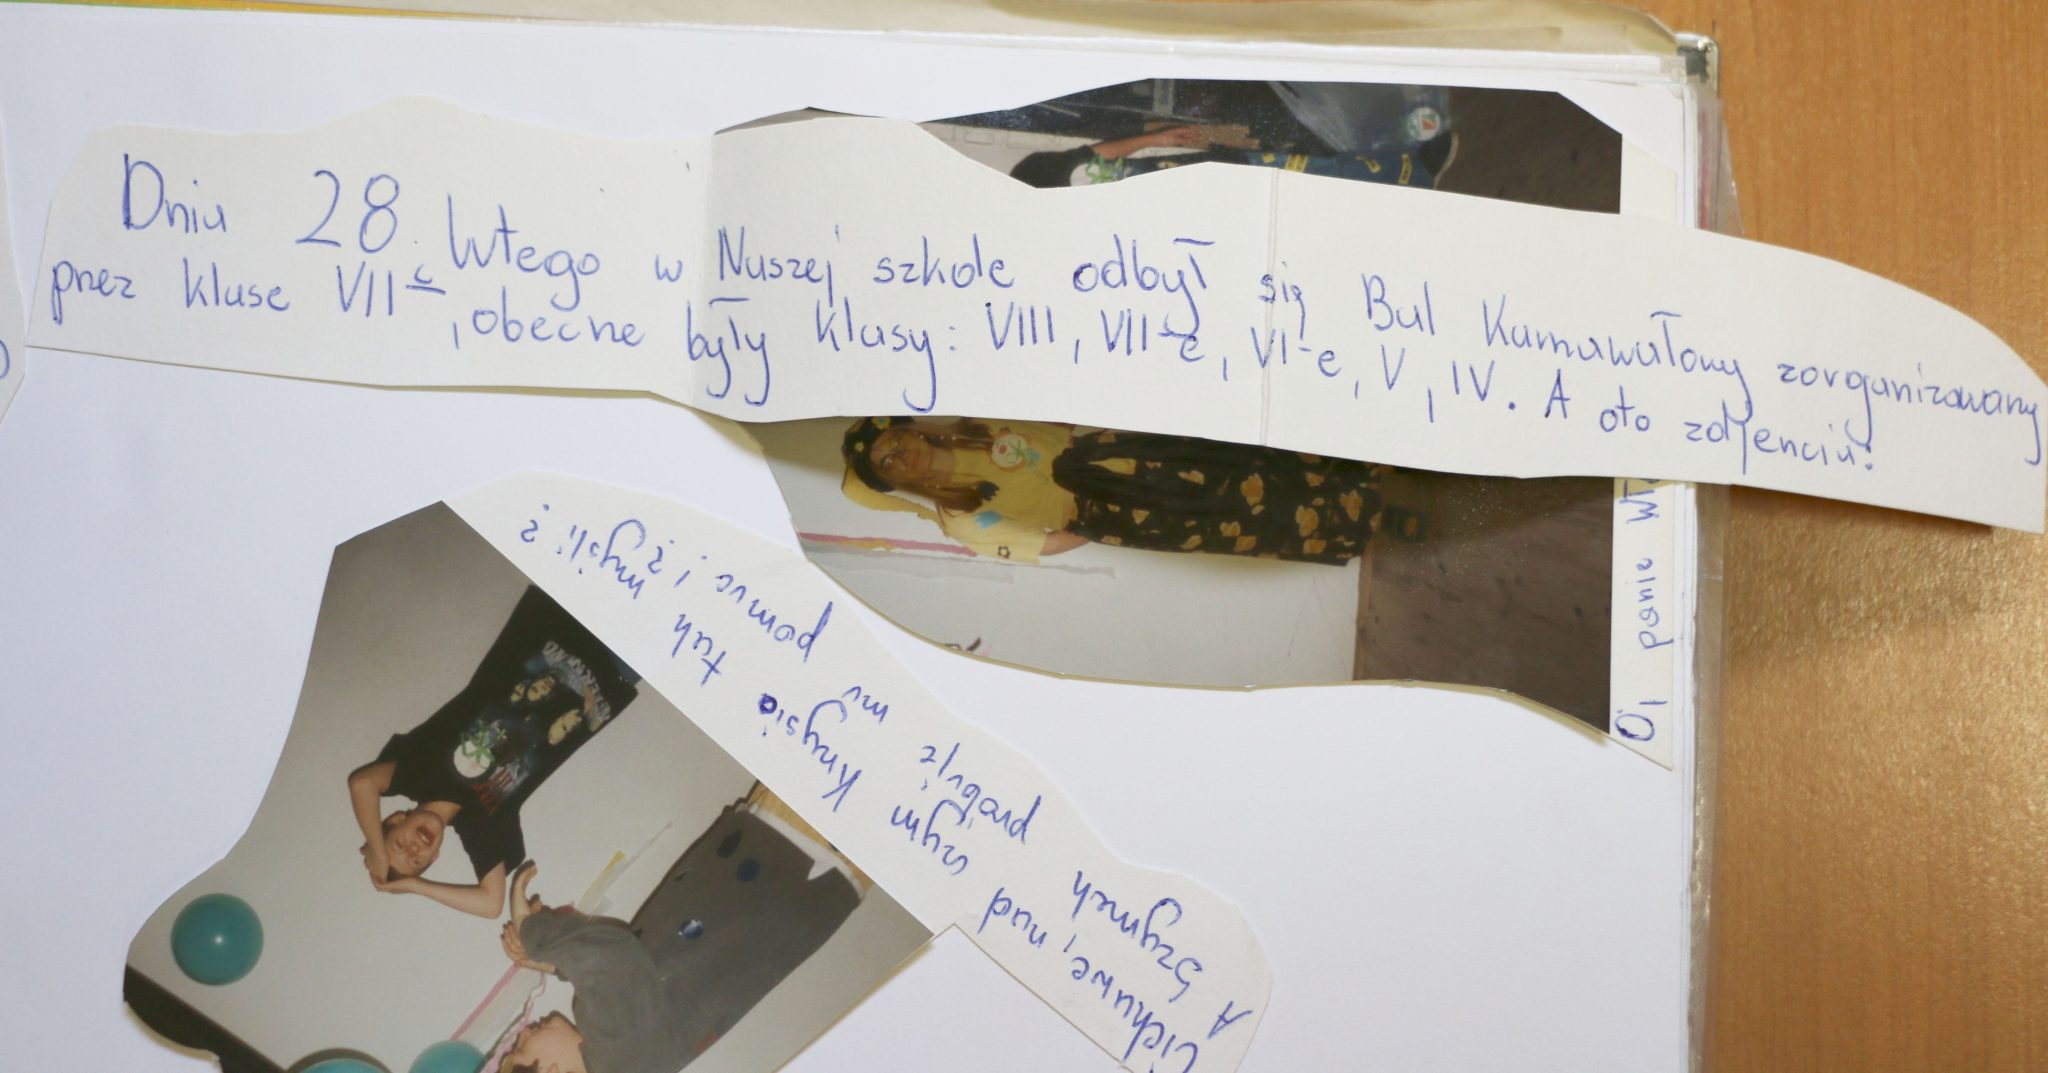 Dnia 28 Lutego w Naszej szkole odbył się Bal Karnawałowy zorganizowany
przez klase VII c, obecne były klasy: VIII, VII-e, VI-e, V, IV. A oto zdjencia:
O, panie
Ciekawe, nad czym Krzysio tak myśli?
A Szymek próbuje mu pomuc i?